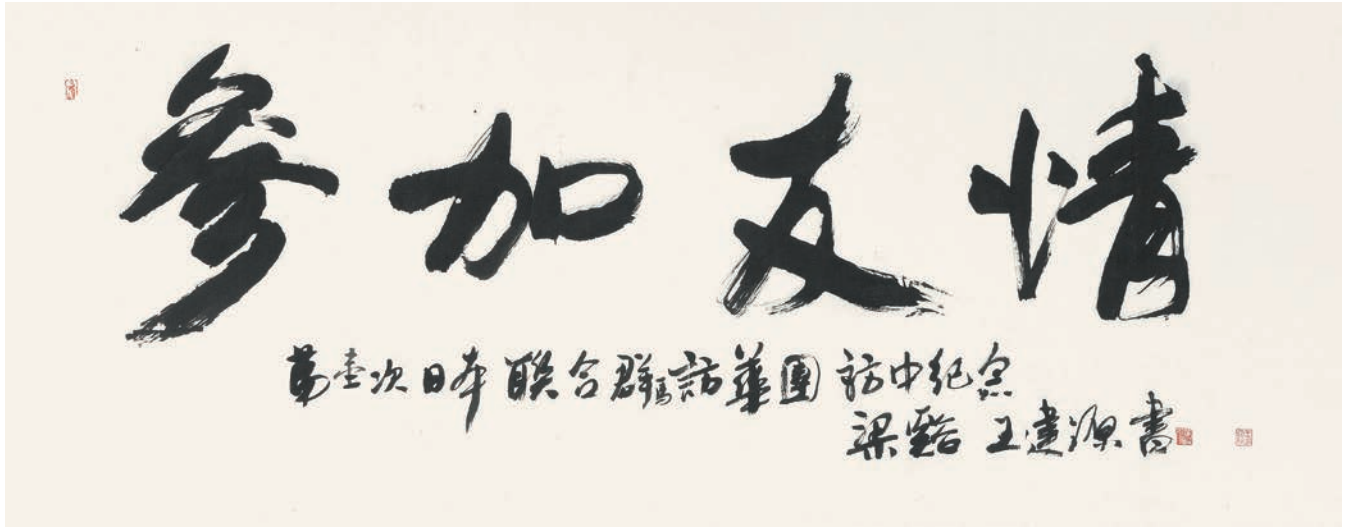 參加友情
第壹次日本聯合群馬訪華團訪中紀念
梁谿 王建源書